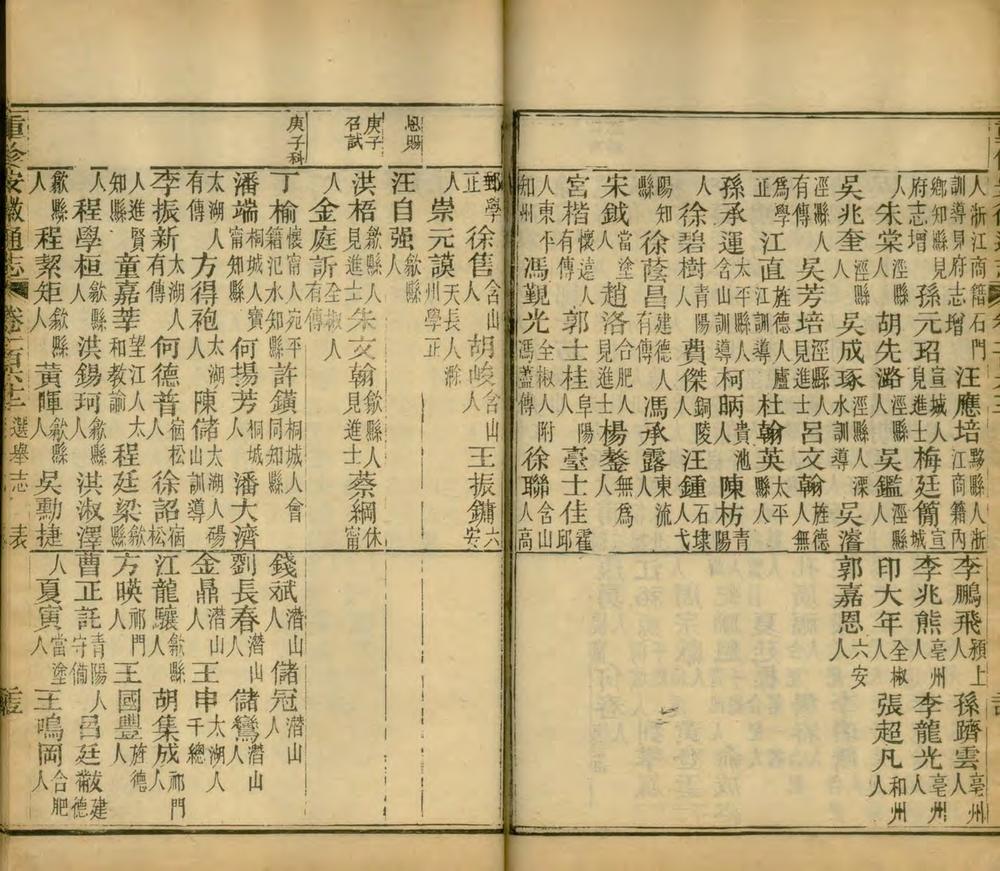 人浙江商籍石門訓導見府志增 汪應培黟縣人浙江商籍內
鄉知縣見府志增 孫元玿宣城人見進士 梅廷簡宣城
人 朱棠涇縣人 胡先潞涇縣人 吳鑑涇縣
人 吳兆奎涇縣人 吳成琢涇縣人溧水訓導 吳濬
涇縣人有傳 吳芳培涇縣人見進士 呂文翰旌德人無
爲學正 江直旌德人廬江訓導 杜翰英太平縣人
孫承運太平縣人含山訓導 柯昞貴池人 陳枋青陽
人 徐碧樹青陽人 費傑銅陵人 汪鍾石埭人弋
陽知縣 徐蔭昌建德人有傳 馮承露東流人
宋鉞當塗人 趙洛合肥人見進士 楊鏊無爲人
宮楷懷遠人有傳 郭士桂阜陽人 臺士佳霍邱
人東平知州 馮覲光全椒人附馮藎傳 徐聯含山人高
李鵬飛潁上人 孫躋雲亳州人
李兆熊亳州人 李龍光亳州人
印大年全椒人 張超凡和州人
郭嘉恩六安人
郵學正 徐售含山人 胡峻含山人 王振鏞六安
人 崇元謨天長人滁州學正
恩賜
汪自强歙縣人
庚子召試
洪梧歙縣人見進士 朱文翰歙縣人見進士 蔡綱休甯
人 金庭訢全椒人有傳
庚子科
丁榆懷甯人宛平籍汜水知縣 許鐄桐城人會同知縣
潘端桐城人寶甯知縣 何揚芳桐城人 潘大濟
太湖人有傳 方得袍太湖人 陳儲太湖人碭山訓導
李振新太湖人有傳 何德普宿松人 徐詔宿松
人進賢知縣 童嘉莘望江人大和教諭 程廷梁歙縣
人 程學桓歙縣人 洪錫珂歙縣人 淇淑澤
歙縣人 程絜矩歙縣人 黃暉歙縣人 吳勳捷
錢斌潛山人 儲冠潛山人
劉長春潛山人 儲鸞潛山人
金鼎潛山人 王申太湖人千總
江龍驤歙縣人 胡集成祁門人
方暎祁門人 王國豐旌德人
曹正託青陽人守備 呂廷黻建德
人 夏寅當塗人 王鳴岡合肥人
重修安徽通志 選舉志 表